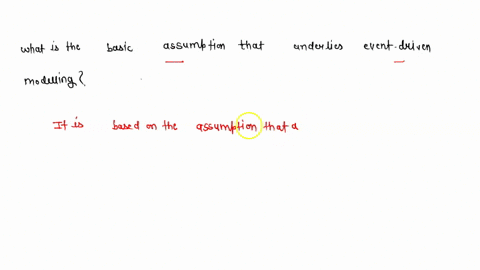 what is the basic assumption that underlies event-driven
modelling?
It is based on the assumption that a